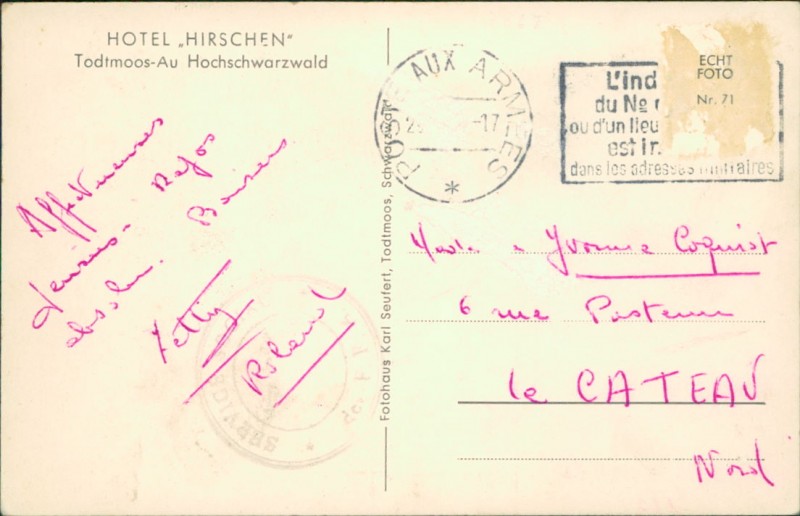 HOTEL „HIRSCHEN"
Todtmoos-Au Hochschwarzwald
Affectueuses
Pensées. Repos
absolu. Baisers
Roland
SERVICE
Fotohaus Karl Seufert, Todtmoos, Schwarzwald
POSTE AUX ARMEES
-17
*
L'ind
du No
ou d'un lieu
est in
dans les adresses militaires
ECHT
FOTO
Nr. 71
Yvonne Coquist
6 rue Pasteur
le CATEAU
Nord